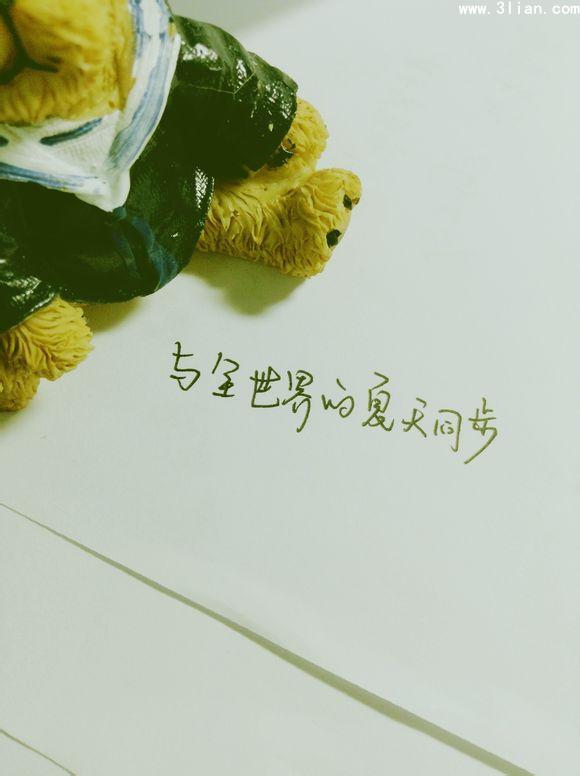 www.3lian.com
与全世界的夏天同步